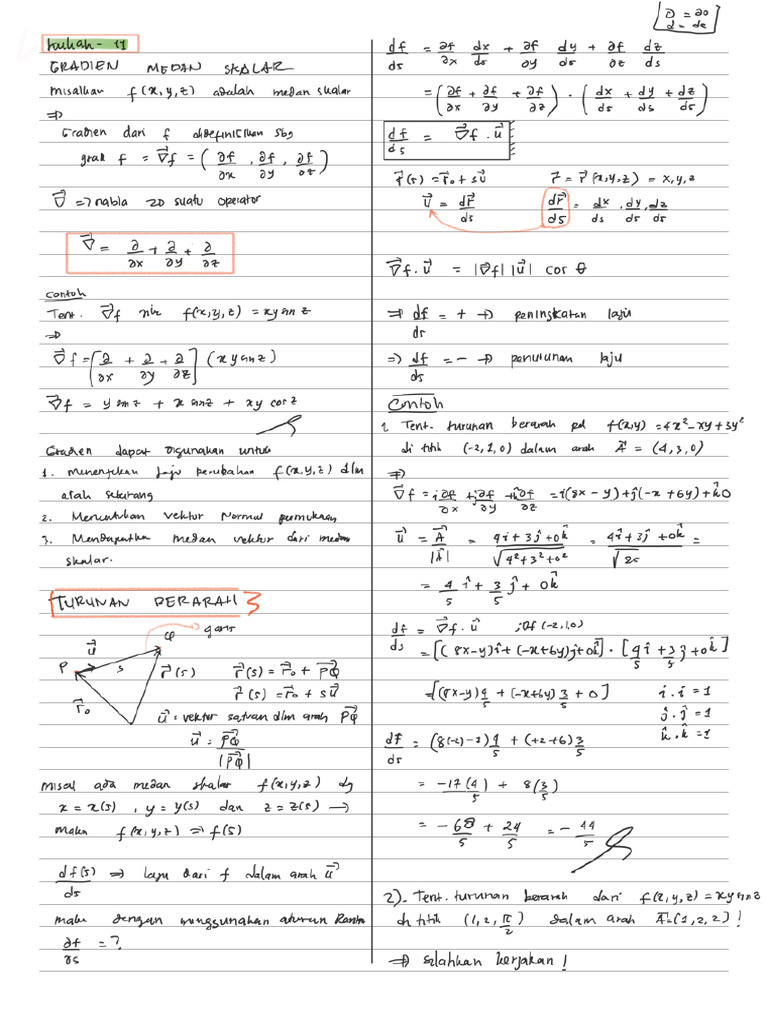 kuliah - 11
GRADIEN MEDAN SKALAR
misalkan f(x,y,z) adalah medan skalar
⇒
Gradien dari f didefinisikan sbg
grad f = ∇⃗f = (∂f/∂x, ∂f/∂y, ∂f/∂z)
∇⃗ ⇒ nabla suatu operator
∇⃗ = ∂/∂x + ∂/∂y + ∂/∂z
contoh
Tent. ∇⃗f f(x,y,z) = xy sin z
⇒
∇⃗f = [∂/∂x + ∂/∂y + ∂/∂z] (xy sin z)
∇⃗f = y sin z + x sin z + xy cos z
Gradien dapat digunakan untuk
1. menentukan laju perubahan f(x,y,z) dlm
arah sebarang
2. Menentukan vektor Normal permukaan
3. Mendapatkan medan vektor dari medan
skalar.
TURUNAN BERARAH
garis
P u⃗ s Q
r⃗₀ r⃗(s)
r⃗(s) = r⃗₀ + PQ⃗
r⃗(s) = r⃗₀ + su⃗
u⃗ = vektor satuan dlm arah PQ⃗
u⃗ = PQ⃗/|PQ⃗|
misal ada medan skalar f(x,y,z) dg
x = x(s), y = y(s) dan z = z(s) →
maka f(x,y,z) ⇒ f(s)
df(s)/ds ⇒ laju dari f dalam arah u⃗
maka dengan menggunakan aturan Rantai
∂f/∂s = ?
D = ∂o
d = de
df/ds = ∂f/∂x dx/ds + ∂f/∂y dy/ds + ∂f/∂z dz/ds
= (∂f/∂x + ∂f/∂y + ∂f/∂z) · (dx/ds + dy/ds + dz/ds)
df/ds = ∇⃗f · u⃗
r⃗(s) = r⃗₀ + su⃗ r⃗ = r⃗(x,y,z) = x,y,z
u⃗ = dr⃗/ds dr⃗/ds = dx/ds, dy/ds, dz/ds
∇⃗f · u⃗ = |∇⃗f| |u⃗| cos θ
⇒ df/ds = + → peningkatan laju
⇒ df/ds = − → penurunan laju
Contoh
1. Tent. turunan berarah pd f(x,y) = 4x² − xy + 3y²
di titik (-2,1,0) dalam arah A⃗ = (4,3,0)
⇒
∇⃗f = i ∂f/∂x + j ∂f/∂y + k ∂f/∂z = i(8x − y) + j(−x + 6y) + k̂0
u⃗ = A⃗/|A⃗| = (4î + 3ĵ + 0k̂)/√(4² + 3² + 0²) = (4î + 3ĵ + 0k̂)/√25 =
= 4/5 î + 3/5 ĵ + 0k̂
df/ds = ∇⃗f · u⃗ ; Df (-2,1,0)
= [(8x−y)î + (−x+6y)ĵ + 0k̂] · [4/5 î + 3/5 ĵ + 0k̂]
= [(8x−y) 4/5 + (−x+6y) 3/5 + 0] i · i = 1
j · j = 1
k̂ · k̂ = 1
df/ds = (8(-2)−1) 4/5 + (+2+6) 3/5
= −17(4/5) + 8(3/5)
= −68/5 + 24/5 = − 44/5
2). Tent. turunan berarah dari f(x,y,z) = xy sin z
di titik (1, 2, π/2) dalam arah A⃗ = (1,2,2) !
⇒ silahkan kerjakan !